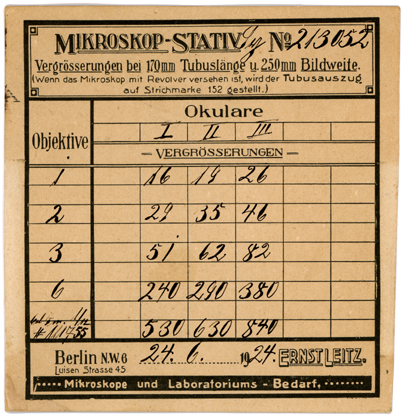 MIKROSKOP-STATIV No 213052
Vergrösserungen bei 170mm Tubuslänge u. 250mm Bildweite.
(Wenn das Mikroskop mit Revolver versehen ist, wird der Tubusauszug
auf Strichmarke 152 gestellt.)
Objektive
Okulare
I II III
— VERGRÖSSERUNGEN —
1 16 19 26
2 29 35 46
3 51 62 82
6 240 290 380
530 630 840
Berlin N.W.6 24. 6. 1924. ERNST LEITZ.
Luisen Strasse 45
Mikroskope und Laboratoriums-Bedarf.